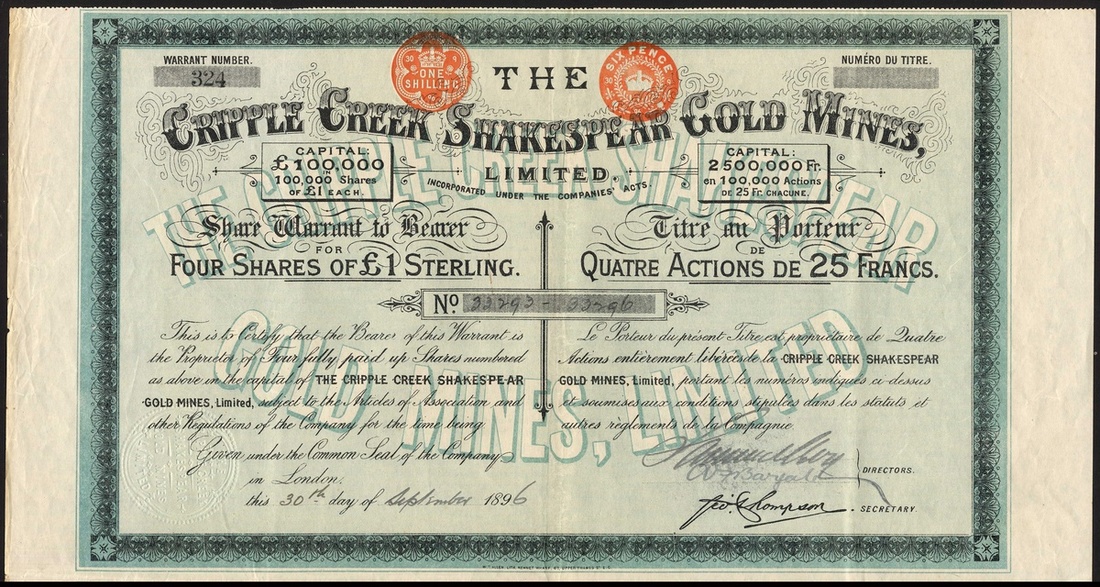 WARRANT NUMBER.
324
NUMÉRO DU TITRE.
ONE
SHILLING
SIX PENCE
THE
CRIPPLE CREEK SHAKESPEAR GOLD MINES,
LIMITED.
INCORPORATED UNDER THE COMPANIES' ACTS.
CAPITAL:
£100,000
IN
100,000 Shares
OF £1 EACH.
CAPITAL:
2500,000 Fr.
en 100,000 Actions
DE 25 Fr. CHACUNE.
THE CRIPPLE CREEK SHAKESPEAR
GOLD MINES, LIMITED
Share Warrant to Bearer
FOR
FOUR SHARES OF £1 STERLING.
Titre au Porteur
DE
QUATRE ACTIONS DE 25 FRANCS.
No 33293-33296
This is to Certify that the Bearer of this Warrant is
the Proprietor of Four fully paid up Shares numbered
as above in the capital of THE CRIPPLE CREEK SHAKESPEAR
GOLD MINES, Limited, subject to the Articles of Association and
other Regulations of the Company for the time being.
Given under the Common Seal of the Company
in London.
this 30th day of September 1896
Le Porteur du présent Titre est propriétaire de Quatre
Actions entièrement libérées de la CRIPPLE CREEK SHAKESPEAR
GOLD MINES, Limited, portant les numéros indiqués ci-dessus
et soumises aux conditions stipulées dans les statuts et
autres règlements de la Compagnie
DIRECTORS.
Geo. Thompson
SECRETARY.